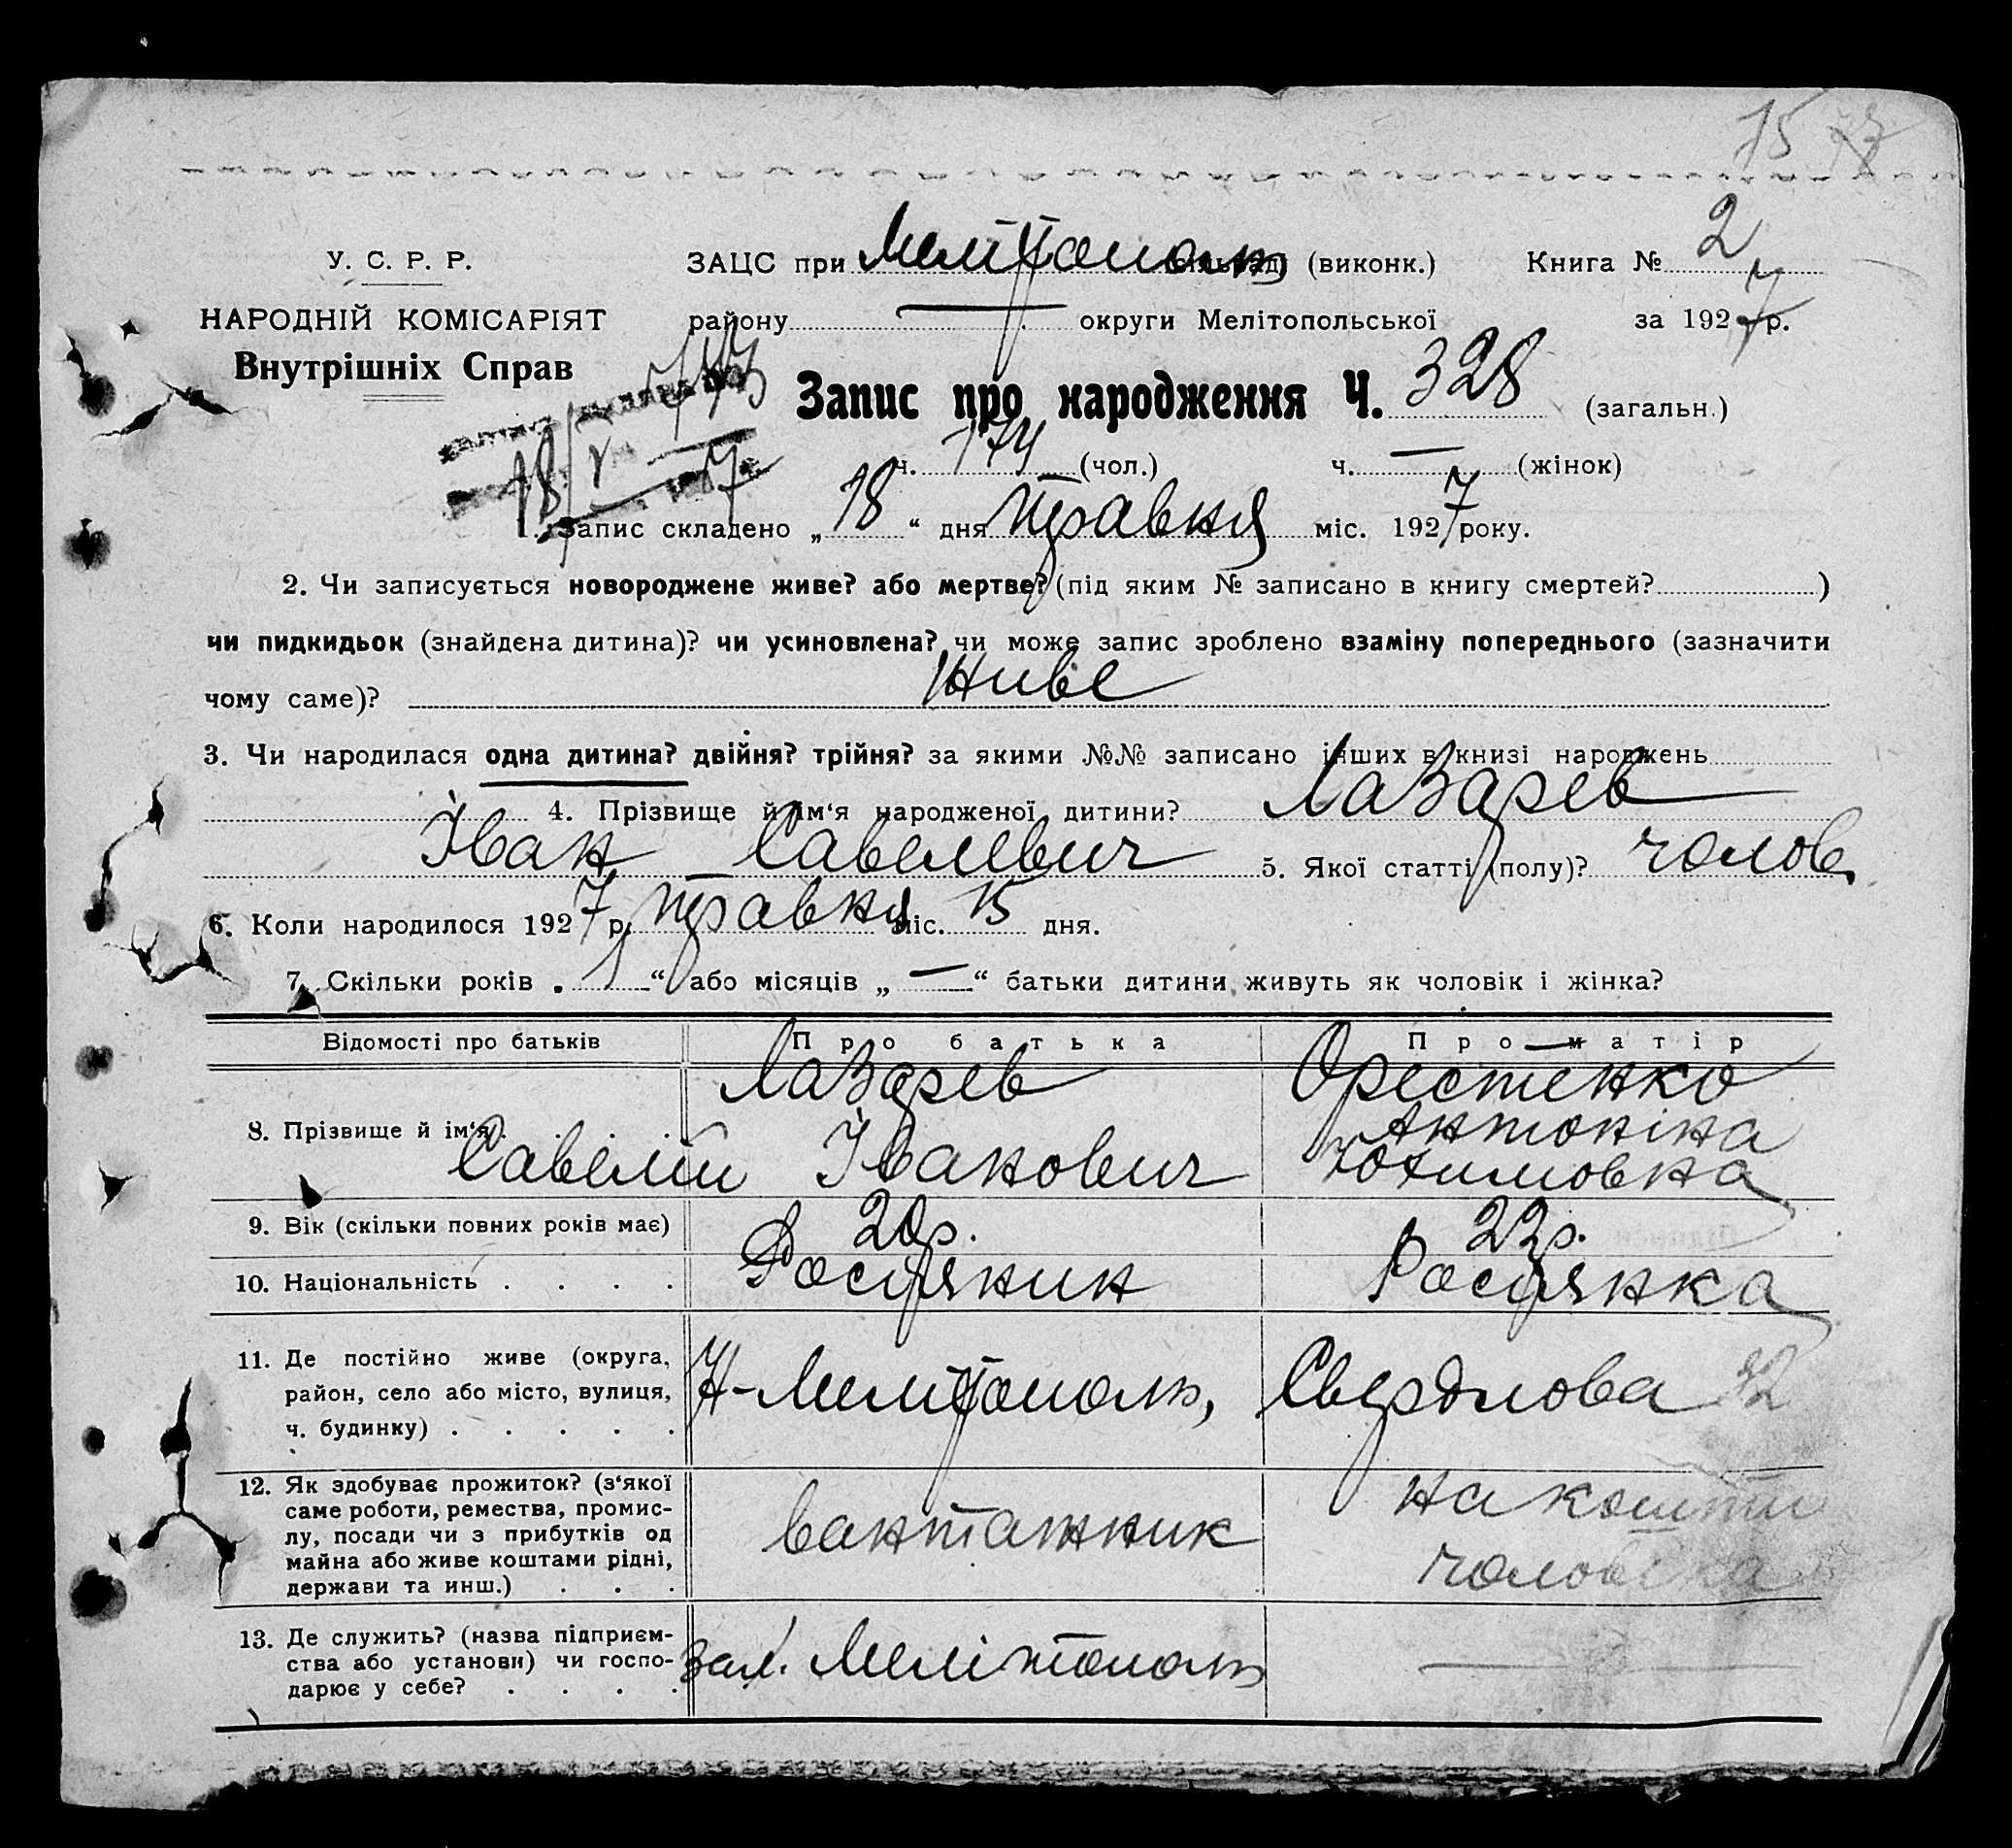 75
У. С. Р. Р.
НАРОДНІЙ КОМІСАРІЯТ
Внутрішніх Справ
ЗАЦС при Мелітополь (виконк.) Книга № 2
району — округи Мелітопольської за 1927 р.
Запис про народження Ч. 328 (загальн.)
ч. 174 (чол.) ч. — (жінок)
18/V 7
1. Запис складено „ 18 “ дня травня міс. 1927 року.
2. Чи записується новороджене живе? або мертве? (під яким № записано в книгу смертей? )
чи пидкидьок (знайдена дитина)? чи усиновлена? чи може запис зроблено взаміну попереднього (зазначити
чому саме)? живе
3. Чи народилася одна дитина? двійня? трійня? за якими №№ записано інших в книзі народжень
4. Прізвище й ім‘я народженої дитини? Лазарев
Іван Савелевич 5. Якої статті (полу)? чолов.
6. Коли народилося 1927 р. травня міс. 15 дня.
7. Скільки років „ 1 “ або місяців „ — “ батьки дитини живуть як чоловік і жінка?
Відомості про батьків Про батька Про матір
8. Прізвище й ім‘я . Лазарев Савелій Іванович Орестенко Антоніна Юхимовна
9. Вік (скільки повних років має) 20 р. 22 р.
10. Національність . . . . Росіянин Росіянка
11. Де постійно живе (округа,
район, село або місто, вулиця,
ч. будинку) . . . . . Н-Мелітополь, Свердлова 32
12. Як здобуває прожиток? (з‘якої
саме роботи, ремества, промис-
лу, посади чи з прибутків од
майна або живе коштами рідні,
держави та инш.) . . . вантажник на кошти чоловіка
13. Де служить? (назва підприєм-
ства або установи) чи госпо-
дарює у себе? . . . . зал. Мелітополь —